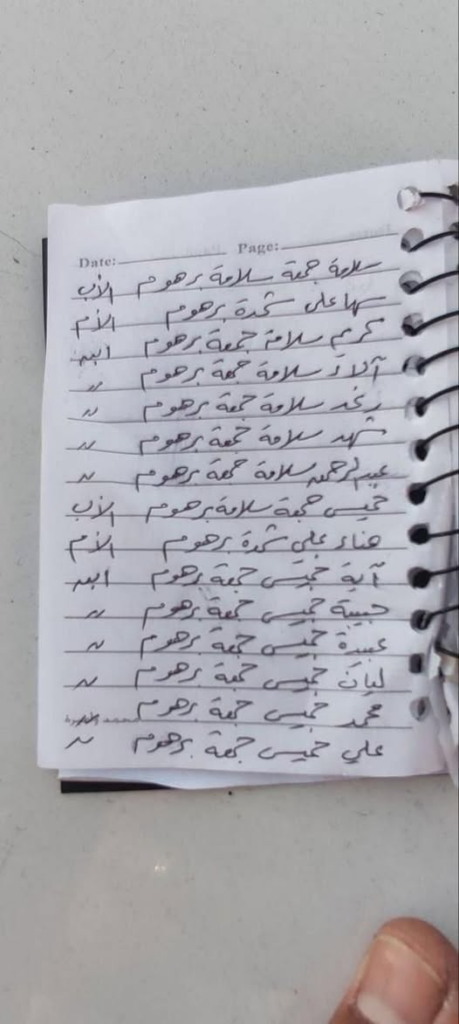 Date: Page:
سلامة جمعة سلامة برهوم الأب
سها علي شحدة برهوم الأم
كرم سلامة جمعة برهوم ابن
آلاء سلامة جمعة برهوم "
رغد سلامة جمعة برهوم "
شهد سلامة جمعة برهوم "
عبدالرحمن سلامة جمعة برهوم "
خميس جمعة سلامة برهوم الأب
هناء علي شحدة برهوم الأم
آية خميس جمعة برهوم ابن
حبيبة خميس جمعة برهوم "
عبيدة خميس جمعة برهوم "
ليان خميس جمعة برهوم "
محمد خميس جمعة برهوم
علي خميس جمعة برهوم "